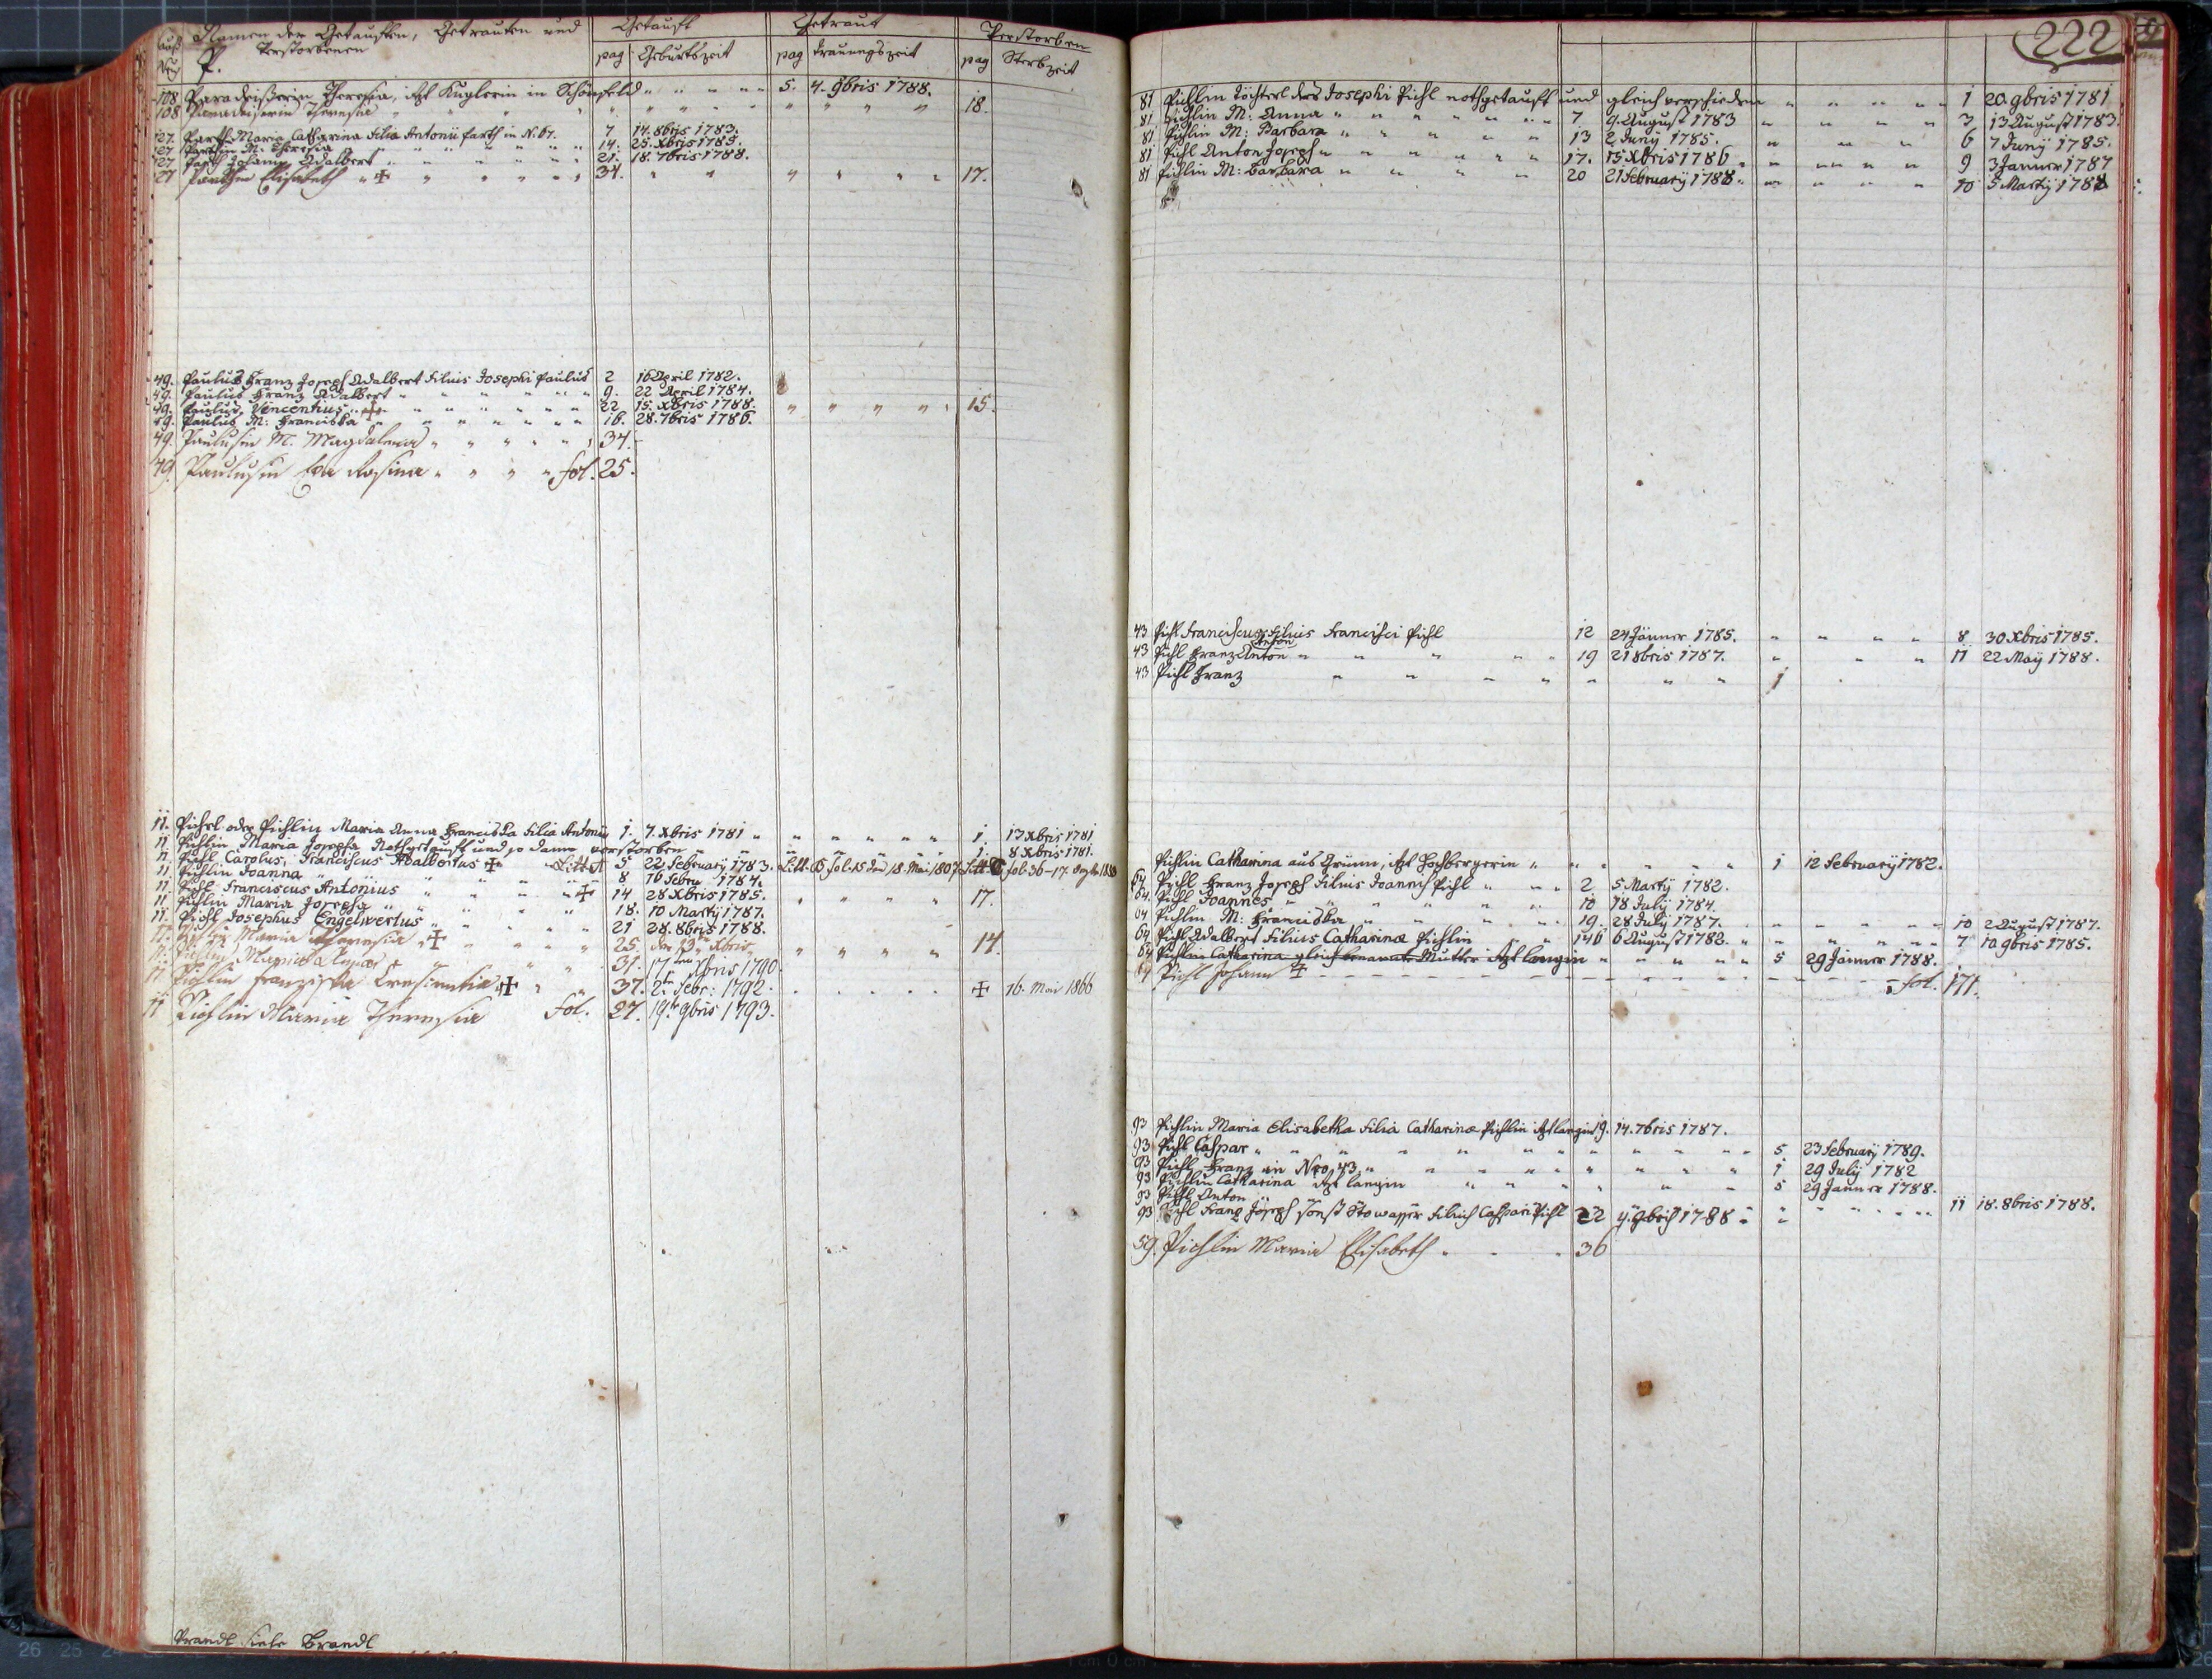 Namen der Getauften, Getrauten und Getauft Getraut Verstorben
P. Verstorbenen pag Geburtszeit pag Trauungszeit pag Sterbzeit
108 Paradeißerin Theresia, itzt Kuglerin in Schönfeld " " " " 5. 4. 9bris 1788.
108 Paradeiserin Theresia " " " " 18.
127. Parth Maria Catharina Filia Antonii Parth in N. 67. 7 14. 8bris 1783.
127. Parthin M: Theresia " " " " 14. 25. Xbris 1785.
127 Parth Johann Adalbert " " " " 21. 18. 7bris 1788.
127 Parthin Elisabeth " ✠ " " " 34. " " " " 17.
49. Paulus Franz Joseph Adalbert Filius Josephi Paulus 2 16 April 1782.
49. Paulus Franz Adalbert " " " " 9. 22 April 1784.
49. Paulus Vencentius " ✠ " " " " 22 15. Xbris 1788. " " " " 15.
49. Paulus M: Franciska " " " " 16. 28. 7bris 1786.
49. Paulusin M. Magdalena " " " " 34.
49. Paulusin Eva Rosina " " " " fol. 25.
11. Pichel oder Pichlin Maria Anna Francisca Filia Antonii 1. 7. Xbris 1781 " " " " 1 13 Xbris 1781
11 Pichlin Maria Josepha Nothgetauft und so dann verstorben " " " " 1. 8 Xbris 1781.
11. Pichl Carolus, Franciscus Adalbertus ✠ Litt A 5 22 February 1783. Litt. B fol. 15 den 18. Mai 1807 Litt C fol. 36 – 17.
11. Pichlin Joanna " " " " 8 16 Febru 1784.
11. Pichl Franciscus Antonius " " " ✠ 14 28 Xbris 1785. " " " " 17.
11 Pichlin Maria Josepha " " " " 18. 10 Martÿ 1787.
11. Pichl Josephus Engelwertus " " " " 21 28. 8bris 1788.
11. Pichlin Maria Theresia " ✠ " " " 25. den 13ten Xbris " " " " 14.
11. Pichlin Maria Anna " " " " 31. 17ten Xbris 1790
11 Pichlin Franziska Crescentia ✠ " " 37. 2t Febr: 1792. . . . . ✠ 16. Mai 1866
11 Pichlin Maria Theresia fol. 27. 19t 9bris 1793.
Prandl siehe Brandl
222
81 Pichlin Töchterl des Josephi Pichl nothgetauft und gleich verschieden " " " " 1 20 9bris 1781
81 Pichlin M: Anna " " " " 7 9. August 1783 " " " " 3 13 August 1783.
81 Pichlin M: Barbara " " " " 13 2 Junÿ 1785. " " " 6 7 Junÿ 1785.
81 Pichl Anton Joseph " " " " 17. 15 Xbris 1786. " " " " 9 3 Janner 1787
81 Pichlin M: Barbara " " " " 20 21 Februarÿ 1788. " " " " 10 5 Martÿ 1788
43 Pichl Franciscus Filius Francisci Pichl 12 24 Jänner 1785. " " " " 8 30 Xbris 1785.
Anton
43 Pichl Franz Anton " " " " 19 21 8bris 1787. " " " 11 22 Maÿ 1788.
43 Pichl Franz " " " " " " " 1
Pichlin Catharina aus Grünn, itzt Hochbergerin " " " " 1 12 Februarÿ 1782.
64 Pichl Franz Joseph Filius Joannis Pichl " " " 2 5 Martÿ 1782.
64. Pichl Joannes " " " " 10 18 Julÿ 1784.
64 Pichlin M: Franciska " " " " 19. 28 Julÿ 1787. " " " " 10 2 August 1787.
64 Pichl Adalbert Filius Catharinæ Pichlin " " 146 6 August 1782. " " " " 7 10 9bris 1785.
64 Pichlin Catharina gleich benannte Mutter itzt langin " " " " 5 29 Jänner 1788.
64 Pichl Johann ✠ fol. 171.
93 Pichlin Maria Elisabetha Filia Catharinæ Pichlin itzt langin 19. 14. 7bris 1787.
93 Pichl Caspar " " " " " " " " 5 23 Februarÿ 1789.
93 Pichl Franz in Nro 43. " " " " " " " " 1 29 Julÿ 1782
93 Pichlin Catharina itzt langin " " " " " " 5 29 Janner 1788.
93 Pichl Anton " " " " 11 18. 8bris 1788.
93 Pichl Franz Joseph sonst Stowasser Filius Caspari Pichl 22 4. 9bris 1788
59. Pichlin Maria Elisabeth . . . 36